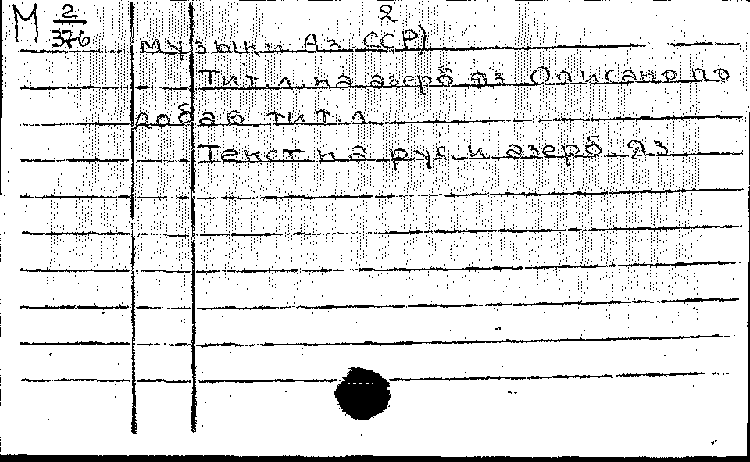 М 2/376
2
музыки Аз ССР)
Тит. л. на азерб яз Описано по
добав тит. л
Текст на рус и азерб. яз